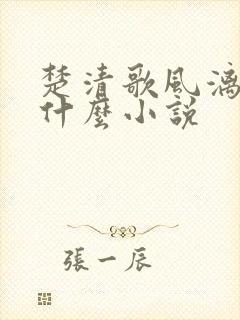 楚清歌風漓
什麼小說
張一辰